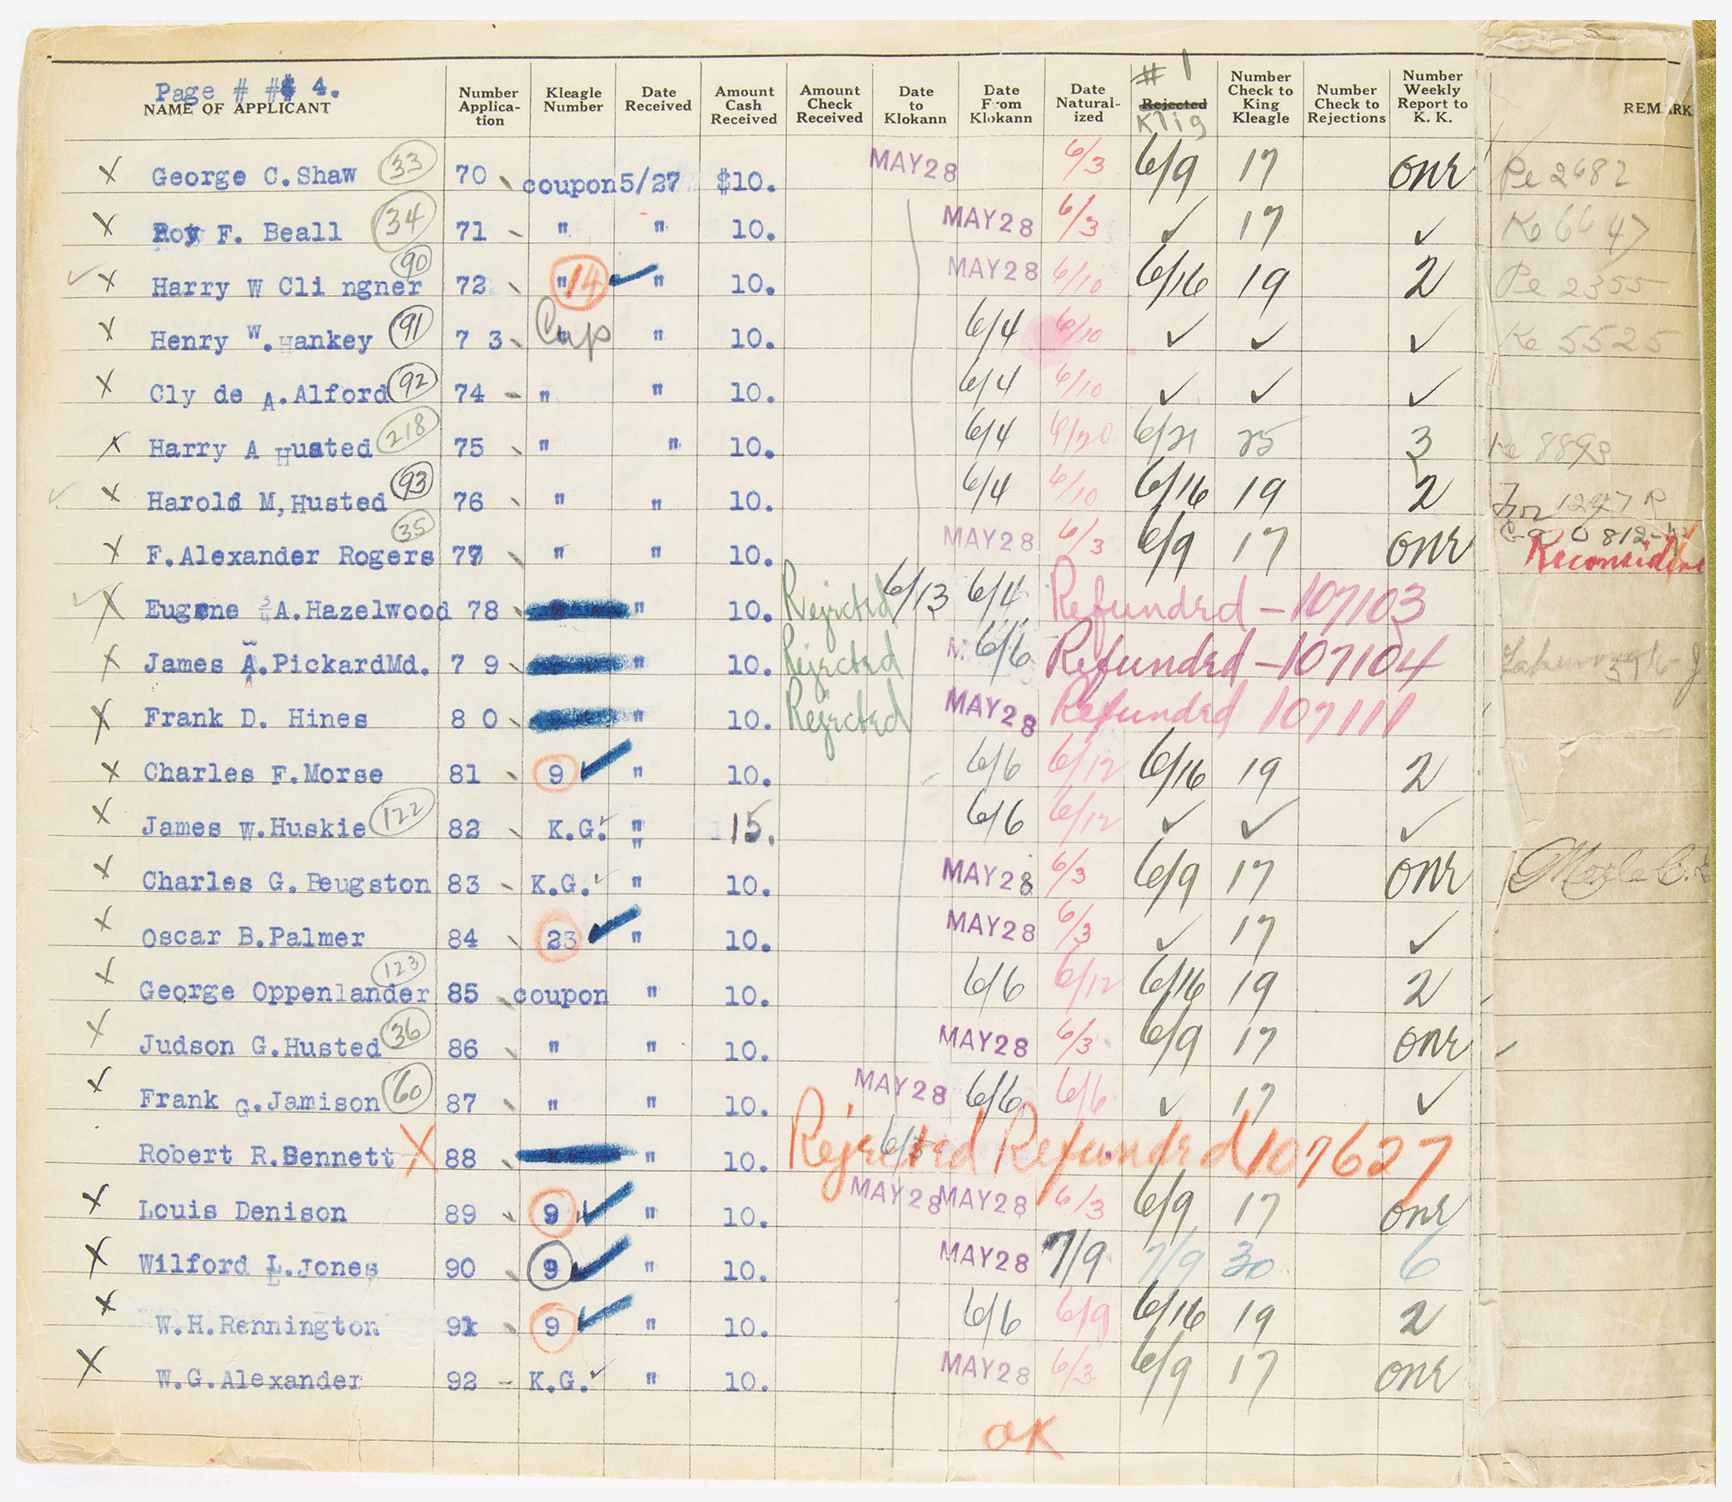 Page # # 4.
NAME OF APPLICANT Number Applica-tion Kleagle Number Date Received Amount Cash Received Amount Check Received Date to Klokann Date From Klokann Date Natural-ized # 1 Rejected Klig Number Check to King Kleagle Number Check to Rejections Number Weekly Report to K. K. REMARK
X George C. Shaw 33 70 coupon 5/27 $10. MAY 28 6/3 6/9 17 one Pe 2682
X Roy F. Beall 34 71 " " 10. MAY 28 6/3 ✓ 17 ✓ Ke 6647
✓ X Harry W Cli ngner 90 72 " 14 ✓ " 10. MAY 28 6/10 6/16 19 2 Pe 2355
X Henry W. Hankey 91 7 3 Cup " 10. 6/4 6/10 ✓ ✓ ✓ Ke 5525
X Cly de A. Alford 92 74 - " " 10. 6/4 6/10 ✓ ✓ ✓
X Harry A Husted 218 75 " " 10. 6/4 6/20 6/21 25 3 Ke 8893
✓ X Harold M, Husted 93 76 " " 10. 6/4 6/10 6/16 19 2 1247 R
X F. Alexander Rogers 35 77 " " 10. MAY 28 6/3 6/9 17 one 0812-W Reconsider
✓ X Eugene A. Hazelwood 78 " 10. Rejected 6/13 6/4 Refunded - 107103
X James A. Pickard Md. 7 9 " 10. Rejected 6/6 Refunded - 107104
X Frank D. Hines 8 0 " 10. Rejected MAY 28 Refunded 107111
X Charles F. Morse 81 9 ✓ " 10. 6/6 6/12 6/16 19 2
X James W. Huskie 122 82 K.G. ✓ " 15. 6/6 6/12 ✓ ✓ ✓
X Charles G. Beugston 83 - K.G. ✓ " 10. MAY 28 6/3 6/9 17 one
X Oscar B. Palmer 84 23 ✓ " 10. MAY 28 6/3 ✓ 17 ✓
X George Oppenlander 123 85 coupon " 10. 6/6 6/12 6/16 19 2
X Judson G. Husted 36 86 " " 10. MAY 28 6/3 6/9 17 one ✓
X Frank G. Jamison 60 87 " " 10. MAY 28 6/6 6/6 ✓ 17 ✓
Robert R. Bennett X 88 " 10. Rejected Refunded 107627
X Louis Denison 89 9 ✓ " 10. MAY 28 MAY 28 6/3 6/9 17 one
X Wilford L. Jones 90 9 ✓ " 10. MAY 28 7/9 7/9 30 6
X W. H. Rennington 91 9 ✓ " 10. 6/6 6/9 6/16 19 2
X W. G. Alexander 92 - K.G. ✓ " 10. MAY 28 6/3 6/9 17 one
OK